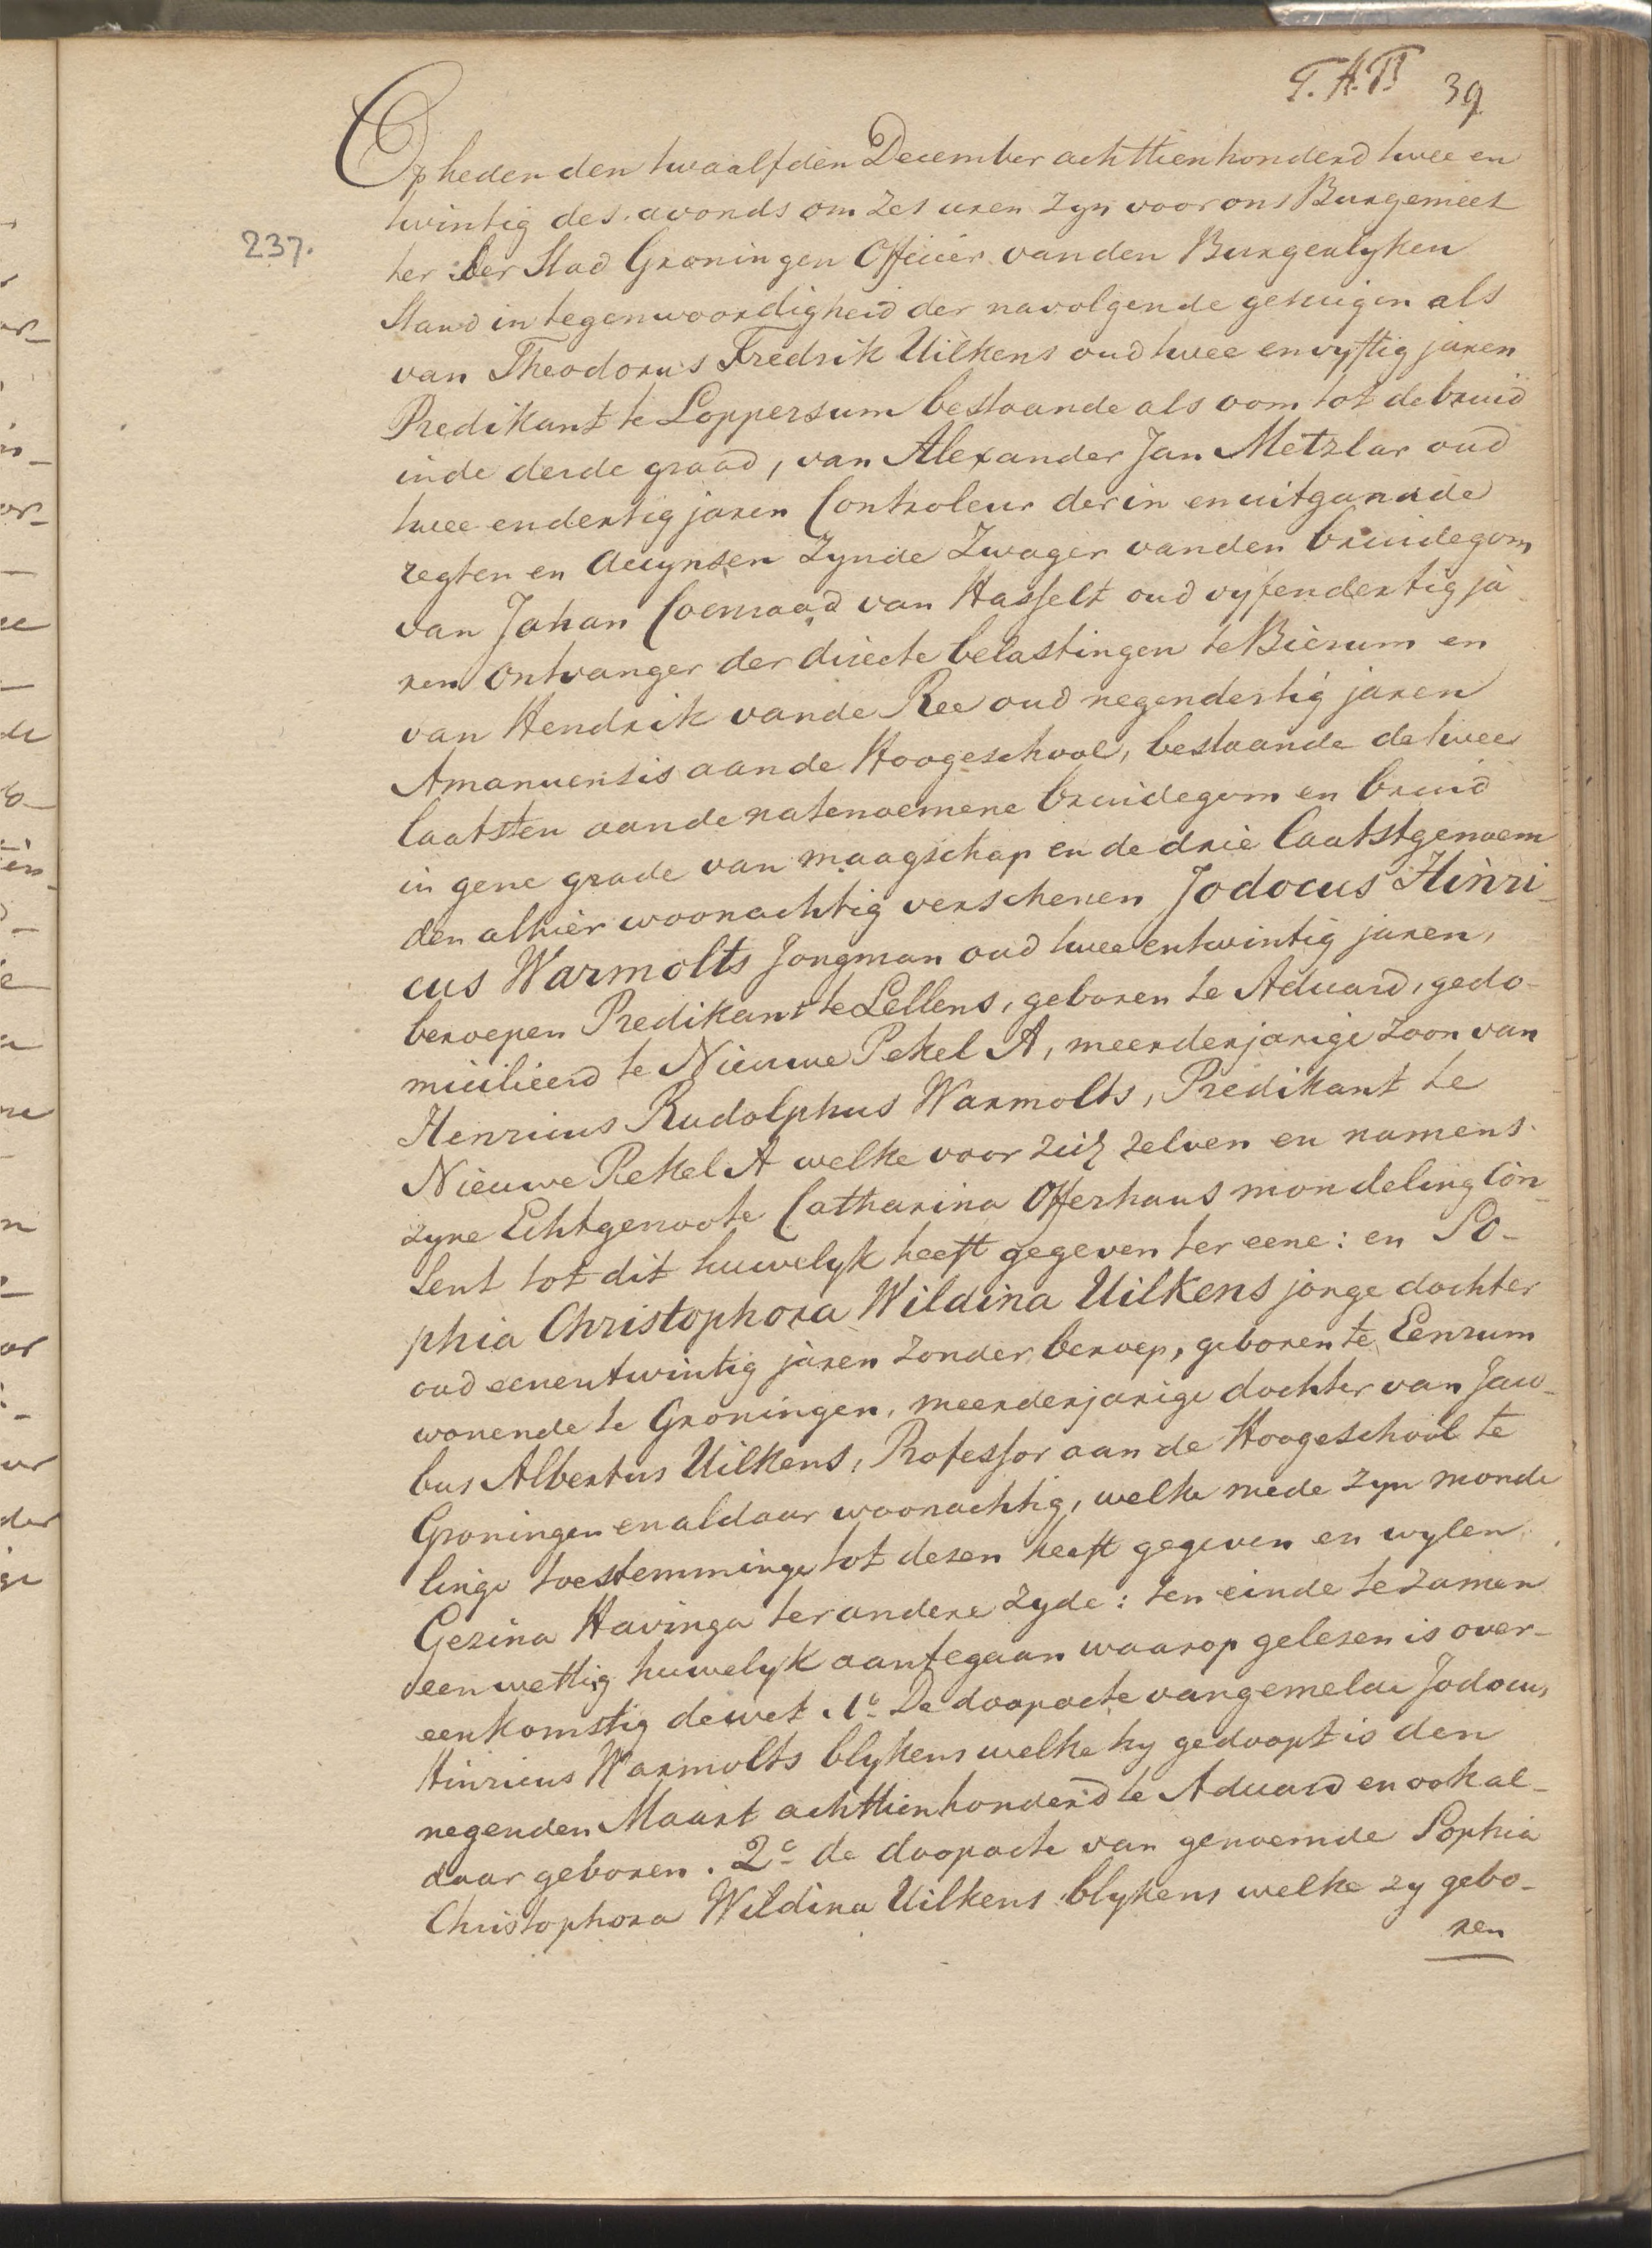 T. A. B 39
Op heden den twaalfden December achttienhonderd twee en
237.
twintig des avonds om zes uren zyn voor ons Burgemees
ter der Stad Groningen Officier van den Burgerlyken
Stand in tegenwoordigheid der navolgende getuigen als
van Theodorus Fredrik Uilkens oud twee en vyftig jaren
Predikant te Loppersum bestaande als oom tot de bruid
in de derde graad, van Alexander Jan Metzlar oud
twee en dertig jaren Controleur der in en uitgaande
regten en Accynsen zynde Zwager van den bruidegom
van Johan Coenraad van Hasselt oud vyf en dertig ja
ren Ontvanger der directe belastingen te Bierum en
van Hendrik van de Ree oud negendertig jaren
Amanuensis aan de Hoogeschool, bestaande de twee
laatsten aan de natenoemene bruidegom en bruid
in gene grade van maagschap en de drie laatstgenoem
den alhier woonachtig verschenen Jodocus Hinri-
cus Warmolts Jongman oud twee en twintig jaren,
beroepen Predikant te Lellens, geboren te Aduard, gedo-
micilieerd te Nieuwe Pekel A, meerderjarige zoon van
Henricus Rudolphus Warmolts, Predikant te
Nieuwe Pekel A welke voor zich zelven en namens
zyne Echtgenoote Catharina Offerhaus mondeling Con-
sent tot dit huwelyk heeft gegeven ter eene: en So-
phia Christophora Wildina Uilkens jonge dochter
oud eenentwintig jaren zonder beroep, geboren te Eenrum
wonende te Groningen, meerderjarige dochter van Jaco-
bus Albertus Uilkens, Professor aan de Hoogeschool te
Groningen en aldaar woonachtig, welke mede zyn monde
linge toestemminge tot dezen heeft gegeven en wylen
Gezina Havinga ter andere zyde: ten einde te zamen
een wettig huwelyk aantegaan waarop gelezen is over-
eenkomstig de wet. 1e De doopacte van gemelde Jodocus
Hinricus Warmolts blykens welke hy gedoopt is den
negenden Maart achttienhonderd te Aduard en ook al-
daar geboren. 2e de doopacte van genoemde Sophia
Christophora Wildina Uilkens blykens welke zy gebo-
ren